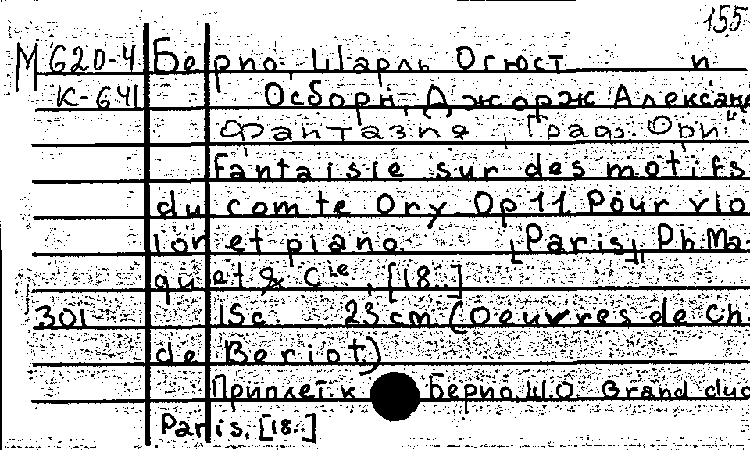 155
М 620-4 Берио, Шарль Огюст и
К-641 Осборн, Джорж Александ
Фантазия "Граф Ори"
Fantaisie sur des motifs
du comte Ory. Op 11. Pour vio
lon et piano. [Paris], Ph. Ma
quet & Cie, [18..]
301 15c. 23 cm (Oeuvres de Ch.
de Beriot)
Приплет. к Берио, Ш.О. Grand duo
Paris, [18..]